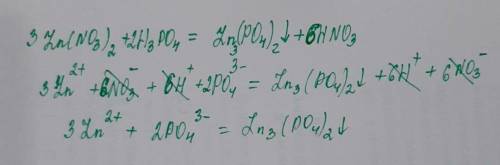 3Zn(NO₃)₂ + 2H₃PO₄ = Zn₃(PO₄)₂↓ + 6HNO₃
3Zn²⁺ + 6NO₃⁻ + 6H⁺ + 2PO₄³⁻ = Zn₃(PO₄)₂↓ + 6H⁺ + 6NO₃⁻
3Zn²⁺ + 2PO₄³⁻ = Zn₃(PO₄)₂↓